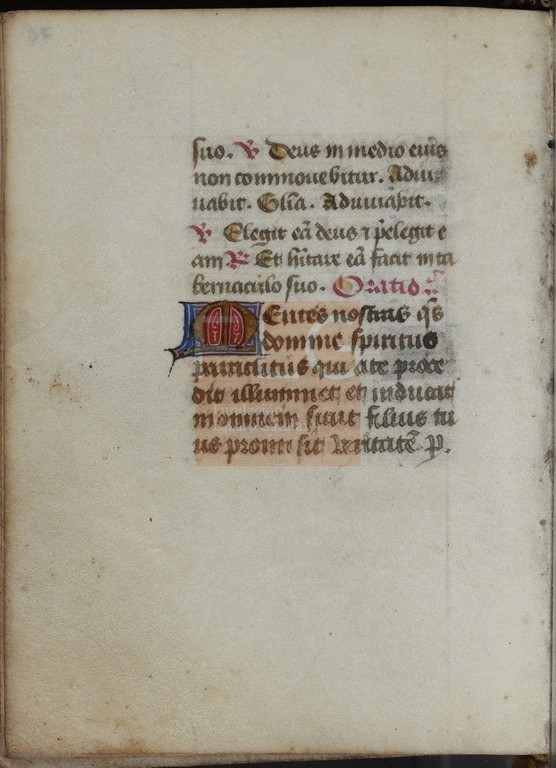 suo. V Deus in medio eius
non commouebitur. Adiu
uabit. Glia. Adiuuabit.
V Elegit eā deus ⁊ p̄elegit e
am R Et hītare eā facit in ta
bernaculo suo. Oratio
Mentes nostras q̄s
domine spiritus
paraclitus qui a te proce
dit illuminet et inducat
in omnem sicut filius tu
us promisit veritatē P.